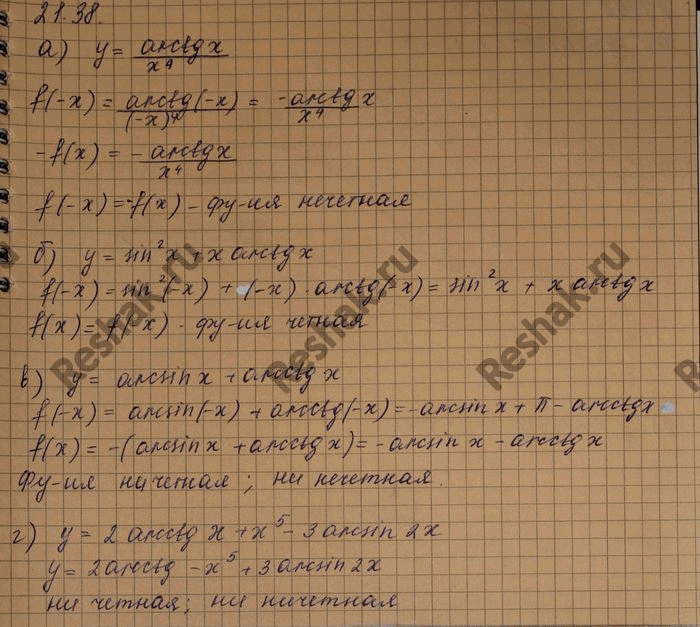 21.38.
а) y = arctg x / x⁴
f(-x) = arctg(-x) / (-x)⁴ = -arctg x / x⁴
-f(x) = - arctg x / x⁴
f(-x) = -f(x) - фу-ия нечетная
б) y = sin²x + x arctg x
f(-x) = sin²(-x) + (-x) · arctg(-x) = sin²x + x arctg x
f(x) = f(-x) - фу-ия четная
в) y = arcsin x + arcctg x
f(-x) = arcsin(-x) + arcctg(-x) = -arcsin x + π - arcctg x
f(x) = -(arcsin x + arcctg x) = -arcsin x - arcctg x
Фу-ия ни четная; ни нечетная.
г) y = 2 arcctg x + x⁵ - 3 arcsin 2x
y = 2 arcctg - x⁵ + 3 arcsin 2x
ни четная; ни ничетная
Reshak.ru
Reshak.ru
Reshak.ru